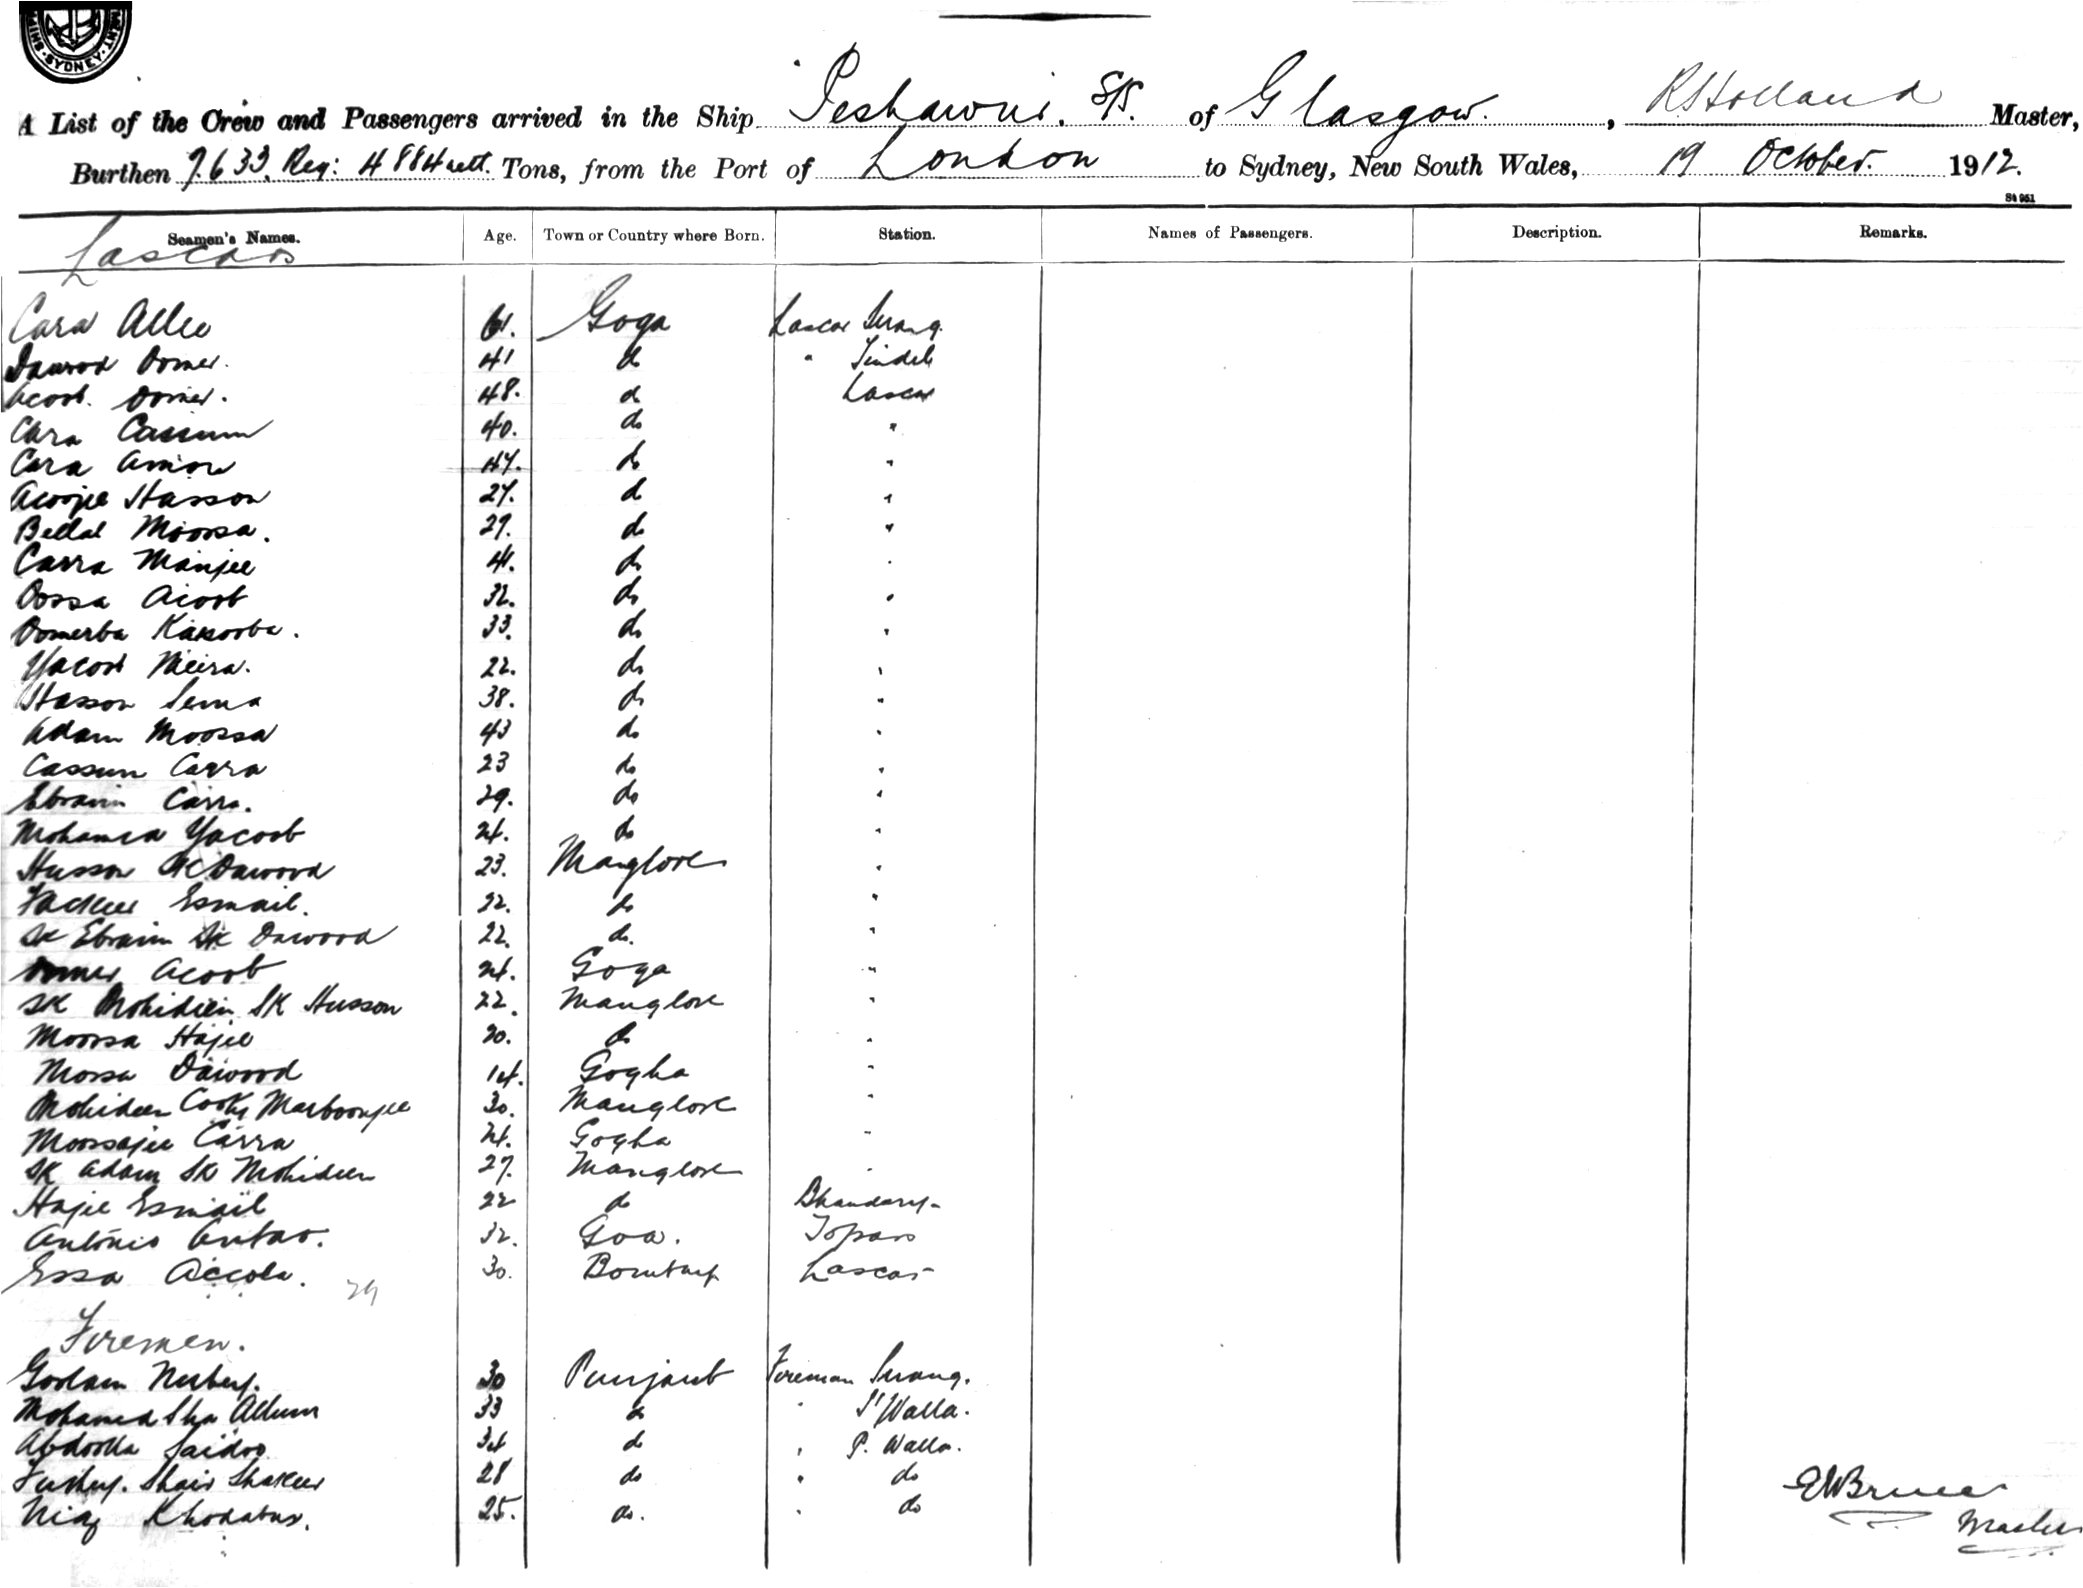 SYDNEY
A List of the Crew and Passengers arrived in the Ship Peshawur. S/S. of Glasgow., Holland Master,
Burthen 7.633. Reg: 4884 nett. Tons, from the Port of London to Sydney, New South Wales, 19 October. 1912.
St 951
Seamen's Names. Age. Town or Country where Born. Station. Names of Passengers. Description. Remarks.
Lascars
Cara Allee 61. Goga Lascar Serang.
Dawood Oomer. 41 do " Tindal
Acoob. Oomer. 48. do Lascar
Cara Cassum 40. do "
Cara Amore 47. do "
Acoojee Hasson 27. do "
Bellal Moossa. 29. do "
Carra Manjee 41. do "
Oossa Acoob 32. do "
Oomerba Kakooba. 33. do "
Yacoob Meera. 22. do "
Hasson Sema 38. do "
Adam Moossa 43 do "
Cassum Carra 23 do "
Ebraim Carra. 29. do "
Mohamed Yacoob 24. do "
Husson SK Dawood 23. Manglore "
Fackeer Esmail. 22. do "
SK Ebraim SK Dawood 22. do. "
Oomer Acoob 24. Goga "
SK Mohideen SK Husson 22. Manglore "
Moosa Hajee 20. do "
Mossa Dawood 14. Gogha "
Mohideen Marboonjee 30. Manglore "
Moossajee Carra 24. Gogha "
SK Adam SK Mohideen 27. Manglore "
Hajee Esmail 22 do Bhandary
Antonio Antao. 32. Goa. Topass
Essa Accola. 30. Bombay Lascar
29
Firemen.
Goolam 30 Punjaub Fireman Serang.
Mohamed Sha Allum 33 do " T/Walla.
Abdoolla Saidoo 34 do " P. Walla.
Shair Shakeer 28 do " do
Niaz Khodabux. 25. do. " do
EWBruce
Master